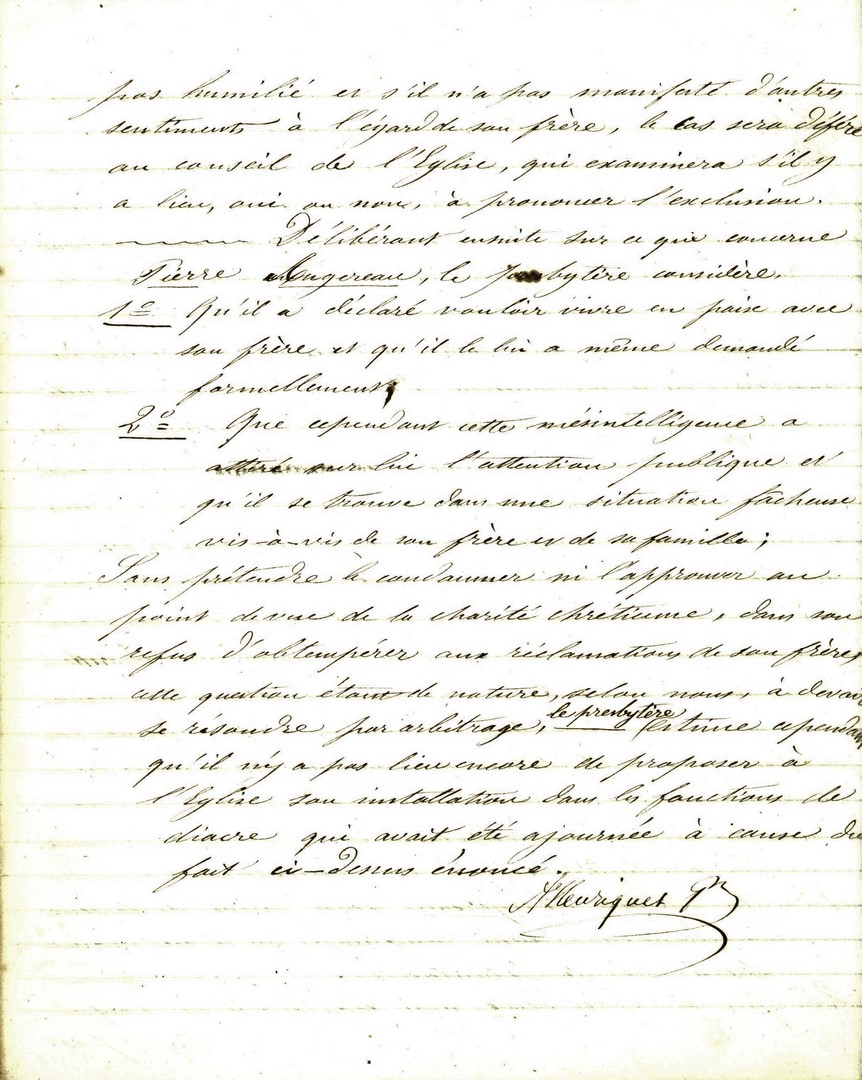 pas humilié et s'il n'a pas manifesté d'autres
sentiments à l'égard de son frère, le cas sera déféré
au conseil de l'Eglise, qui examinera s'il y
a lieu, oui ou non, à prononcer l'exclusion.
Délibérant ensuite sur ce qui concerne
Pierre Augereau, le presbytère considère.
1º Qu'il a déclaré vouloir vivre en paix avec
son frère et qu'il le lui a même demandé
formellement;
2º Que cependant cette mésintelligence a
attiré sur lui l'attention publique et
qu'il se trouve dans une situation facheuse
vis-à-vis de son frère et de sa famille;
Sans prétendre le condamner ni l'approuver au
point de vue de la charité chrétienne, dans son
refus d'obtempérer aux réclamations de son frère,
cette question étant de nature, selon nous, à devoir
se résoudre par arbitrage, le presbytère estime cependant
qu'il n'y a pas lieu encore de proposer à
l'Eglise son installation dans les fonctions de
diacre qui avait été ajournée à cause du
fait ci-dessus énoncé.
Henriquet